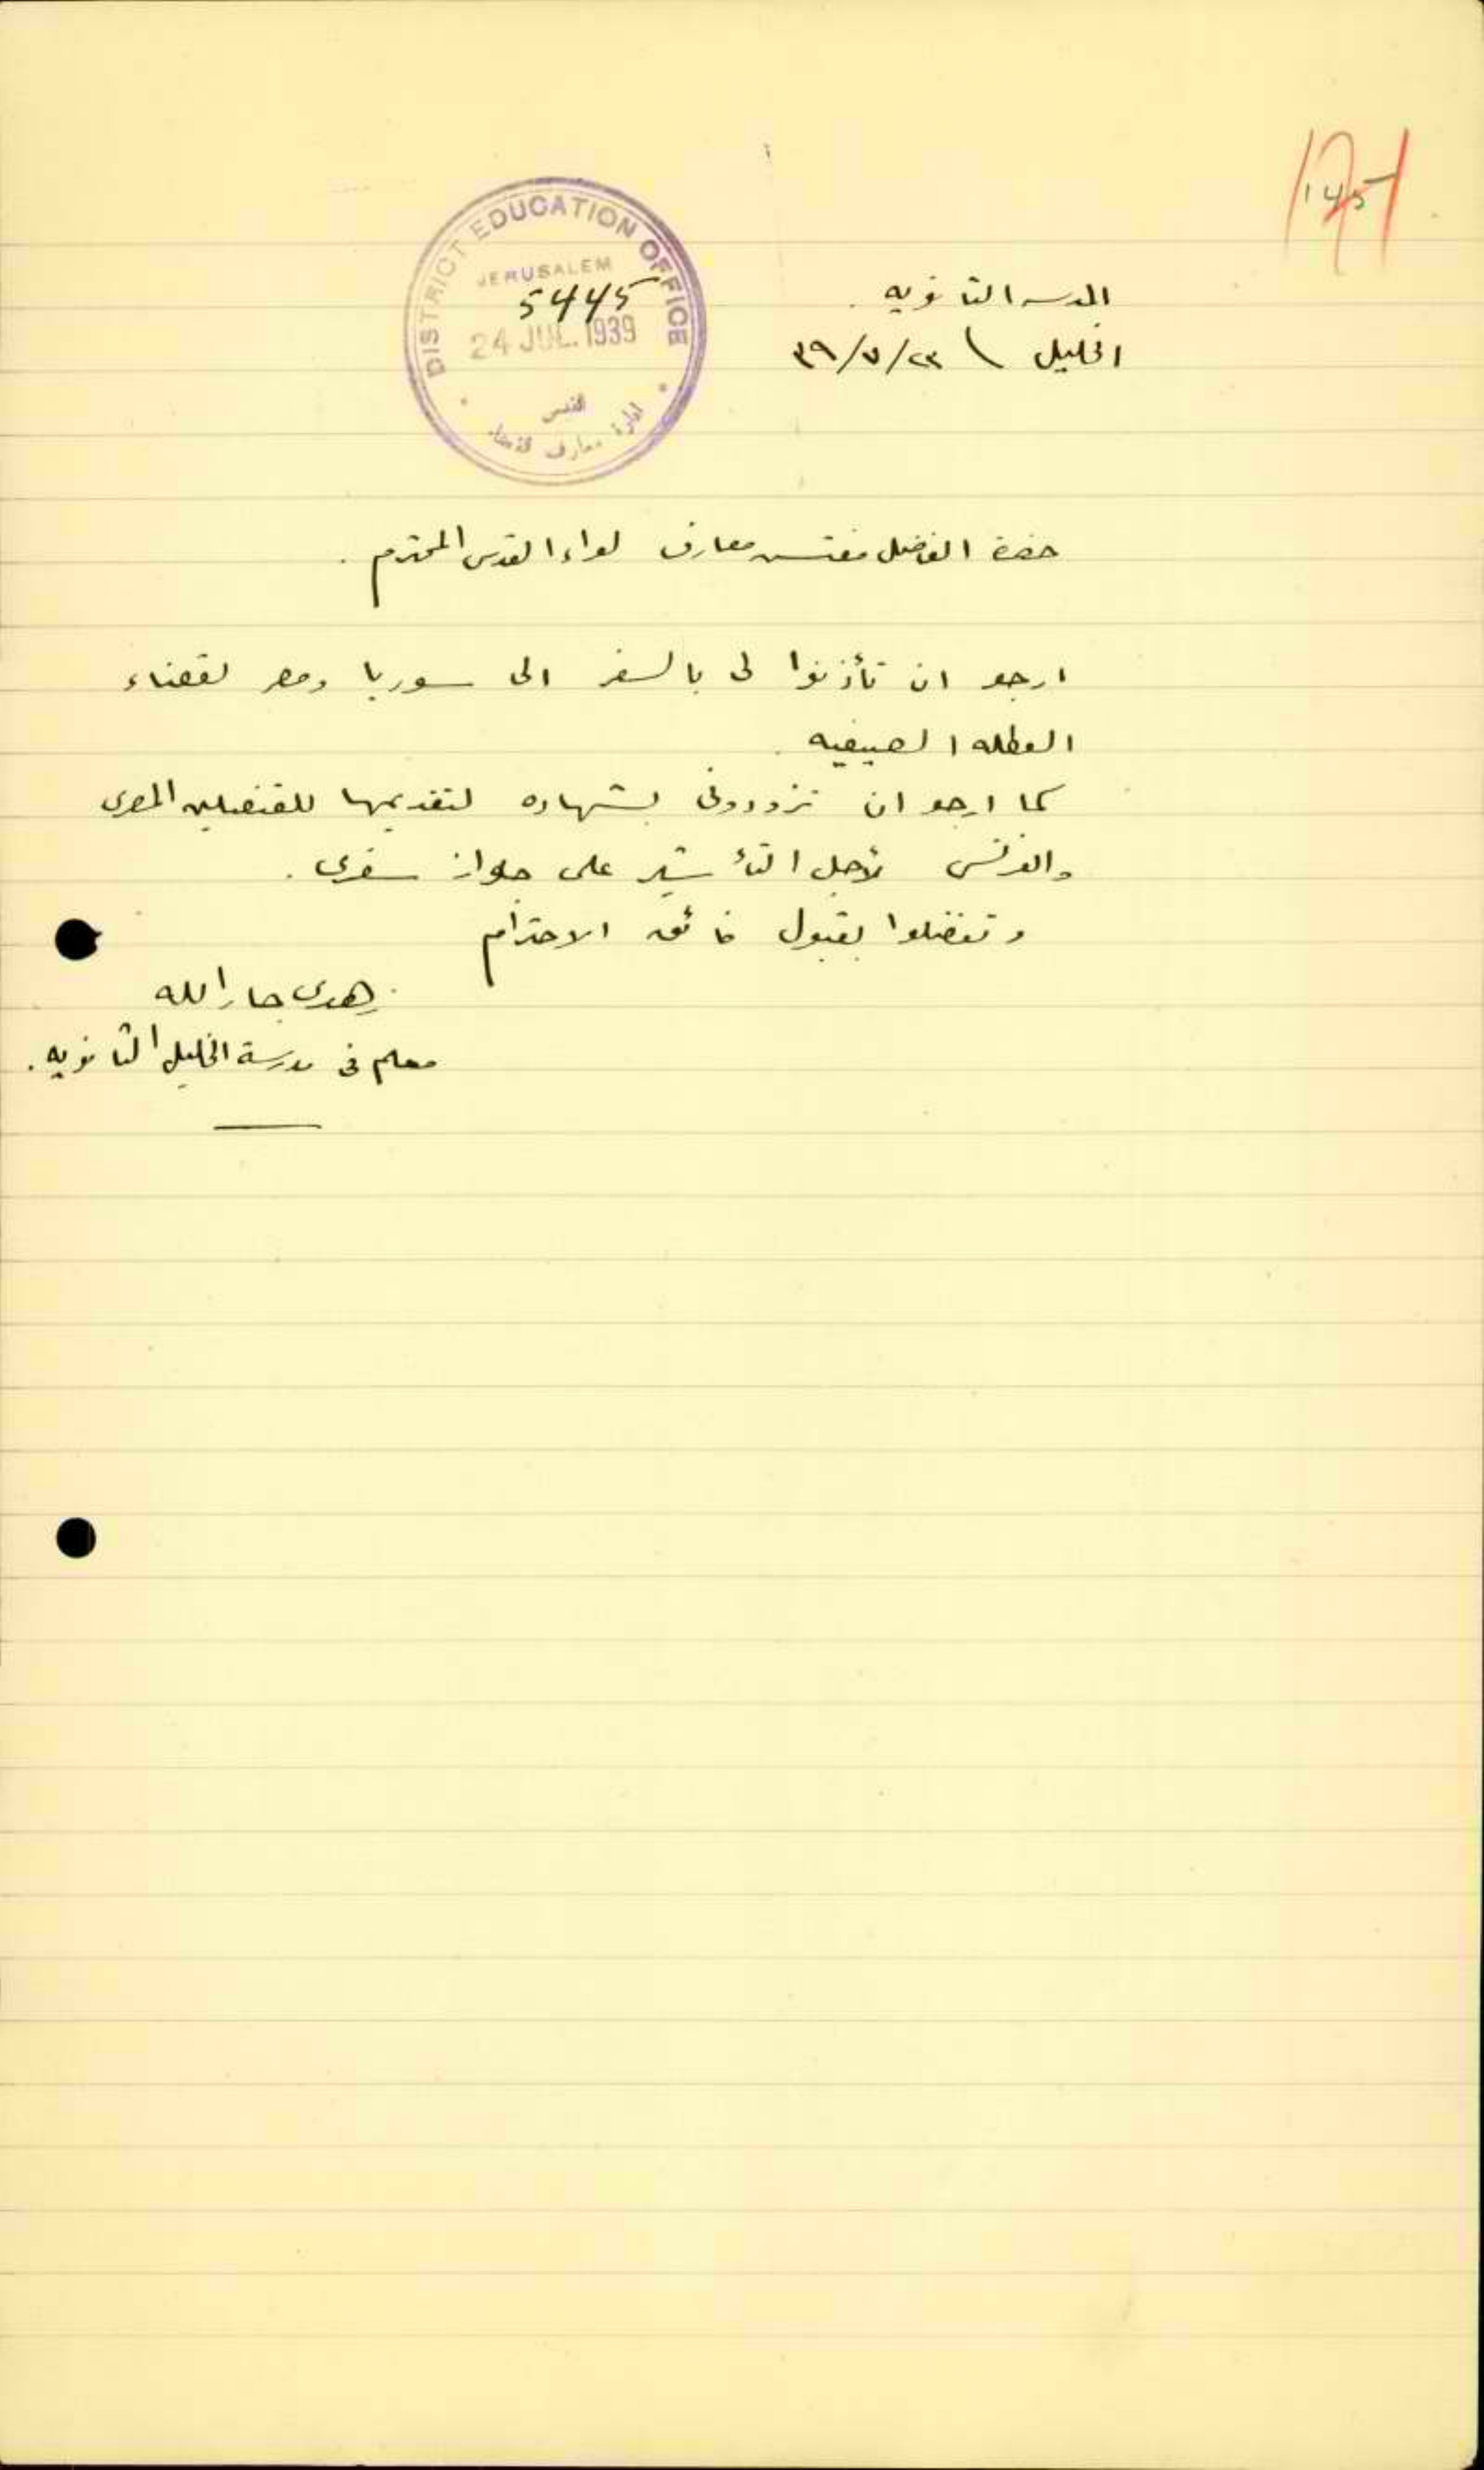 145
DISTRICT EDUCATION OFFICE
JERUSALEM
5445
24 JUL. 1939
القدس
ادارة معارف
المدرسه الثانويه .
الخليل \ ٢٣/٧/٣٩
حضرة الفاضل مفتش معارف لواء القدس المحترم .
ارجو ان تأذنوا لي بالسفر الى سوريا ومصر لقضاء
العطله الصيفيه .
كما ارجو ان تزودوني بشهاده لتقديمها للقنصلين المصري
والفرنسي لأجل التأشير على جواز سفري .
وتفضلوا بقبول فائق الاحترام
زهدي جارالله
معلم في مدرسة الخليل الثانويه .